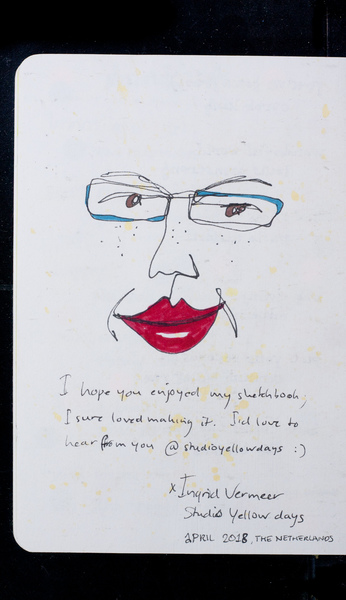 I hope you enjoyed my sketchbook,
I sure loved making it. I'd love to
hear from you @studioyellowdays :)
x Ingrid Vermeer
Studio Yellow days
APRIL 2018, THE NETHERLANDS